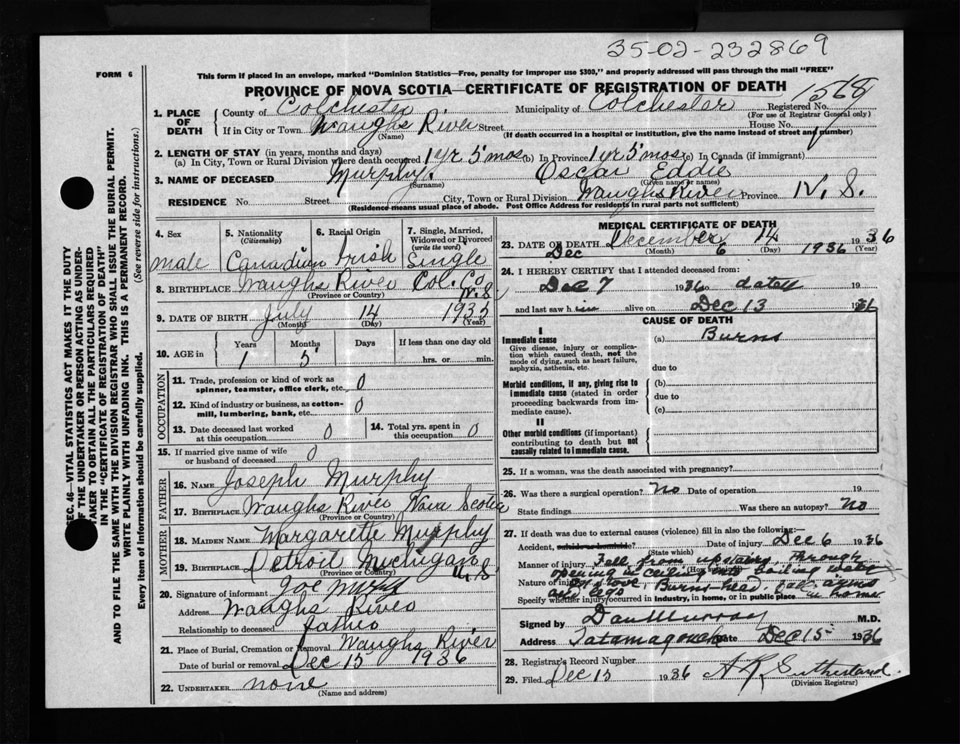 35-02-232869
FORM 6
This form if placed in an envelope, marked "Dominion Statistics—Free, penalty for improper use $300," and properly addressed will pass through the mail "FREE"
PROVINCE OF NOVA SCOTIA—CERTIFICATE OF REGISTRATION OF DEATH
1568
1. PLACE OF DEATH County of Colchester Municipality of Colchester Registered No.
(For use of Registrar General only)
If in City or Town Waughs River Street House No.
(Name) (If death occurred in a hospital or institution, give the name instead of street and number)
2. LENGTH OF STAY (in years, months and days)
(a) In City, Town or Rural Division where death occurred 1 yr 5 mos (b) In Province 1 yr 5 mos (c) In Canada (if immigrant)
3. NAME OF DECEASED Murphy Oscar Eddie
(Surname) (Given name or names)
RESIDENCE No. Street City, Town or Rural Division Waughs River Province N. S.
(Residence means usual place of abode. Post Office Address for residents in rural parts not sufficient)
4. Sex 5. Nationality (Citizenship) 6. Racial Origin 7. Single, Married, Widowed or Divorced (write the word)
male Canadian Irish Single
8. BIRTHPLACE Waughs River Col. Co. N.S
(Province or Country)
9. DATE OF BIRTH July 14 1935
(Month) (Day) (Year)
10. AGE in Years Months Days If less than one day old
1 5 hrs. or min.
OCCUPATION
11. Trade, profession or kind of work as spinner, teamster, office clerk, etc. 0
12. Kind of industry or business, as cotton-mill, lumbering, bank, etc. 0
13. Date deceased last worked at this occupation 0 14. Total yrs. spent in this occupation 0
15. If married give name of wife or husband of deceased 0
FATHER
16. NAME Joseph Murphy
17. BIRTHPLACE Waughs River Nova Scotia
(Province or Country)
MOTHER
18. MAIDEN NAME Margarette Murphy
19. BIRTHPLACE Detroit Michigan U.S.
(Province or Country)
20. Signature of informant Joe
Address Waughs River
Relationship to deceased father
21. Place of Burial, Cremation or Removal Waughs River
Date of burial or removal Dec 15 1936
22. UNDERTAKER none
(Name and address)
MEDICAL CERTIFICATE OF DEATH
23. DATE OF DEATH December 14 1936
Dec 6 1936
(Month) (Day) (Year)
24. I HEREBY CERTIFY that I attended deceased from:
Dec 7 1936 to date
and last saw him alive on Dec 13 1936
CAUSE OF DEATH
I
Immediate cause (a) Burns
Give disease, injury or complication which caused death, not the mode of dying, such as heart failure, asphyxia, asthenia, etc.
due to
Morbid conditions, if any, giving rise to immediate cause (stated in order proceeding backwards from immediate cause).
(b)
due to
(c)
II
Other morbid conditions (if important) contributing to death but not causally related to immediate cause.
25. If a woman, was the death associated with pregnancy?
26. Was there a surgical operation? No Date of operation 19
State findings Was there an autopsy? No
27. If death was due to external causes (violence) fill in also the following:—
Accident, suicide or homicide? Date of injury Dec 6 1936
(State which)
Manner of injury Fell from upstairs, through opening in ceiling into boiling water
Nature of injury on stove Burns head face arms and legs
Specify whether injury occurred in industry, in home, or in public place in home
Signed by Dan Murray M.D.
Address Tatamagouche Date Dec 15 1936
28. Registrar's Record Number
29. Filed Dec 15 1936 A R Sutherland.
(Division Registrar)
SEC. 46—VITAL STATISTICS ACT MAKES IT THE DUTY OF THE UNDERTAKER OR PERSON ACTING AS UNDERTAKER TO OBTAIN ALL THE PARTICULARS REQUIRED IN THE "CERTIFICATE OF REGISTRATION OF DEATH" AND TO FILE THE SAME WITH THE DIVISION REGISTRAR WHO SHALL ISSUE THE BURIAL PERMIT.
WRITE PLAINLY WITH UNFADING INK. THIS IS A PERMANENT RECORD.
Every item of information should be carefully supplied. (See reverse side for instructions.)